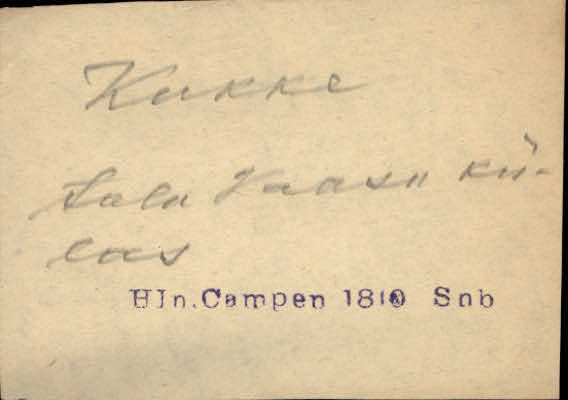 Kukke
talu Vaasa kü-
las
HJn.Campen 1810 Snb